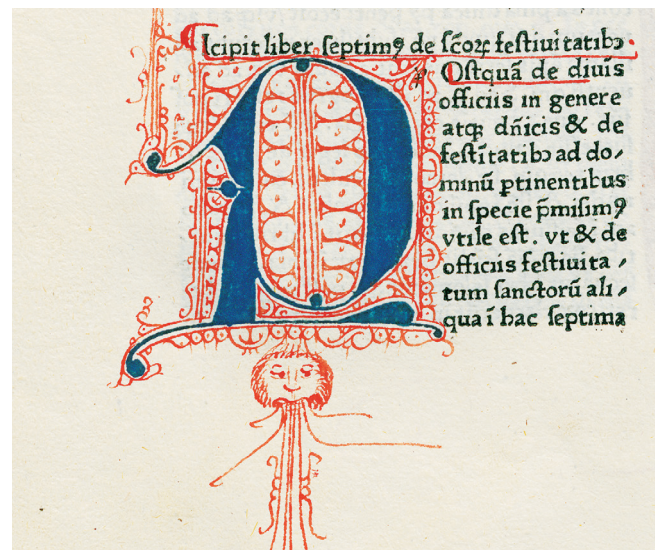 Icipit liber septimꝰ de sc̄oꝝ festiuitatibꝫ
POstquā de diuis
officiis in genere
atqꝫ dn̄icis & de
festītatibꝫ ad do⸗
minū ꝑtinentibus
in specie p̄misimꝰ
vtile est . vt & de
officiis festiuita ⸗
tum sanctorū ali ⸗
qua ī hac septima